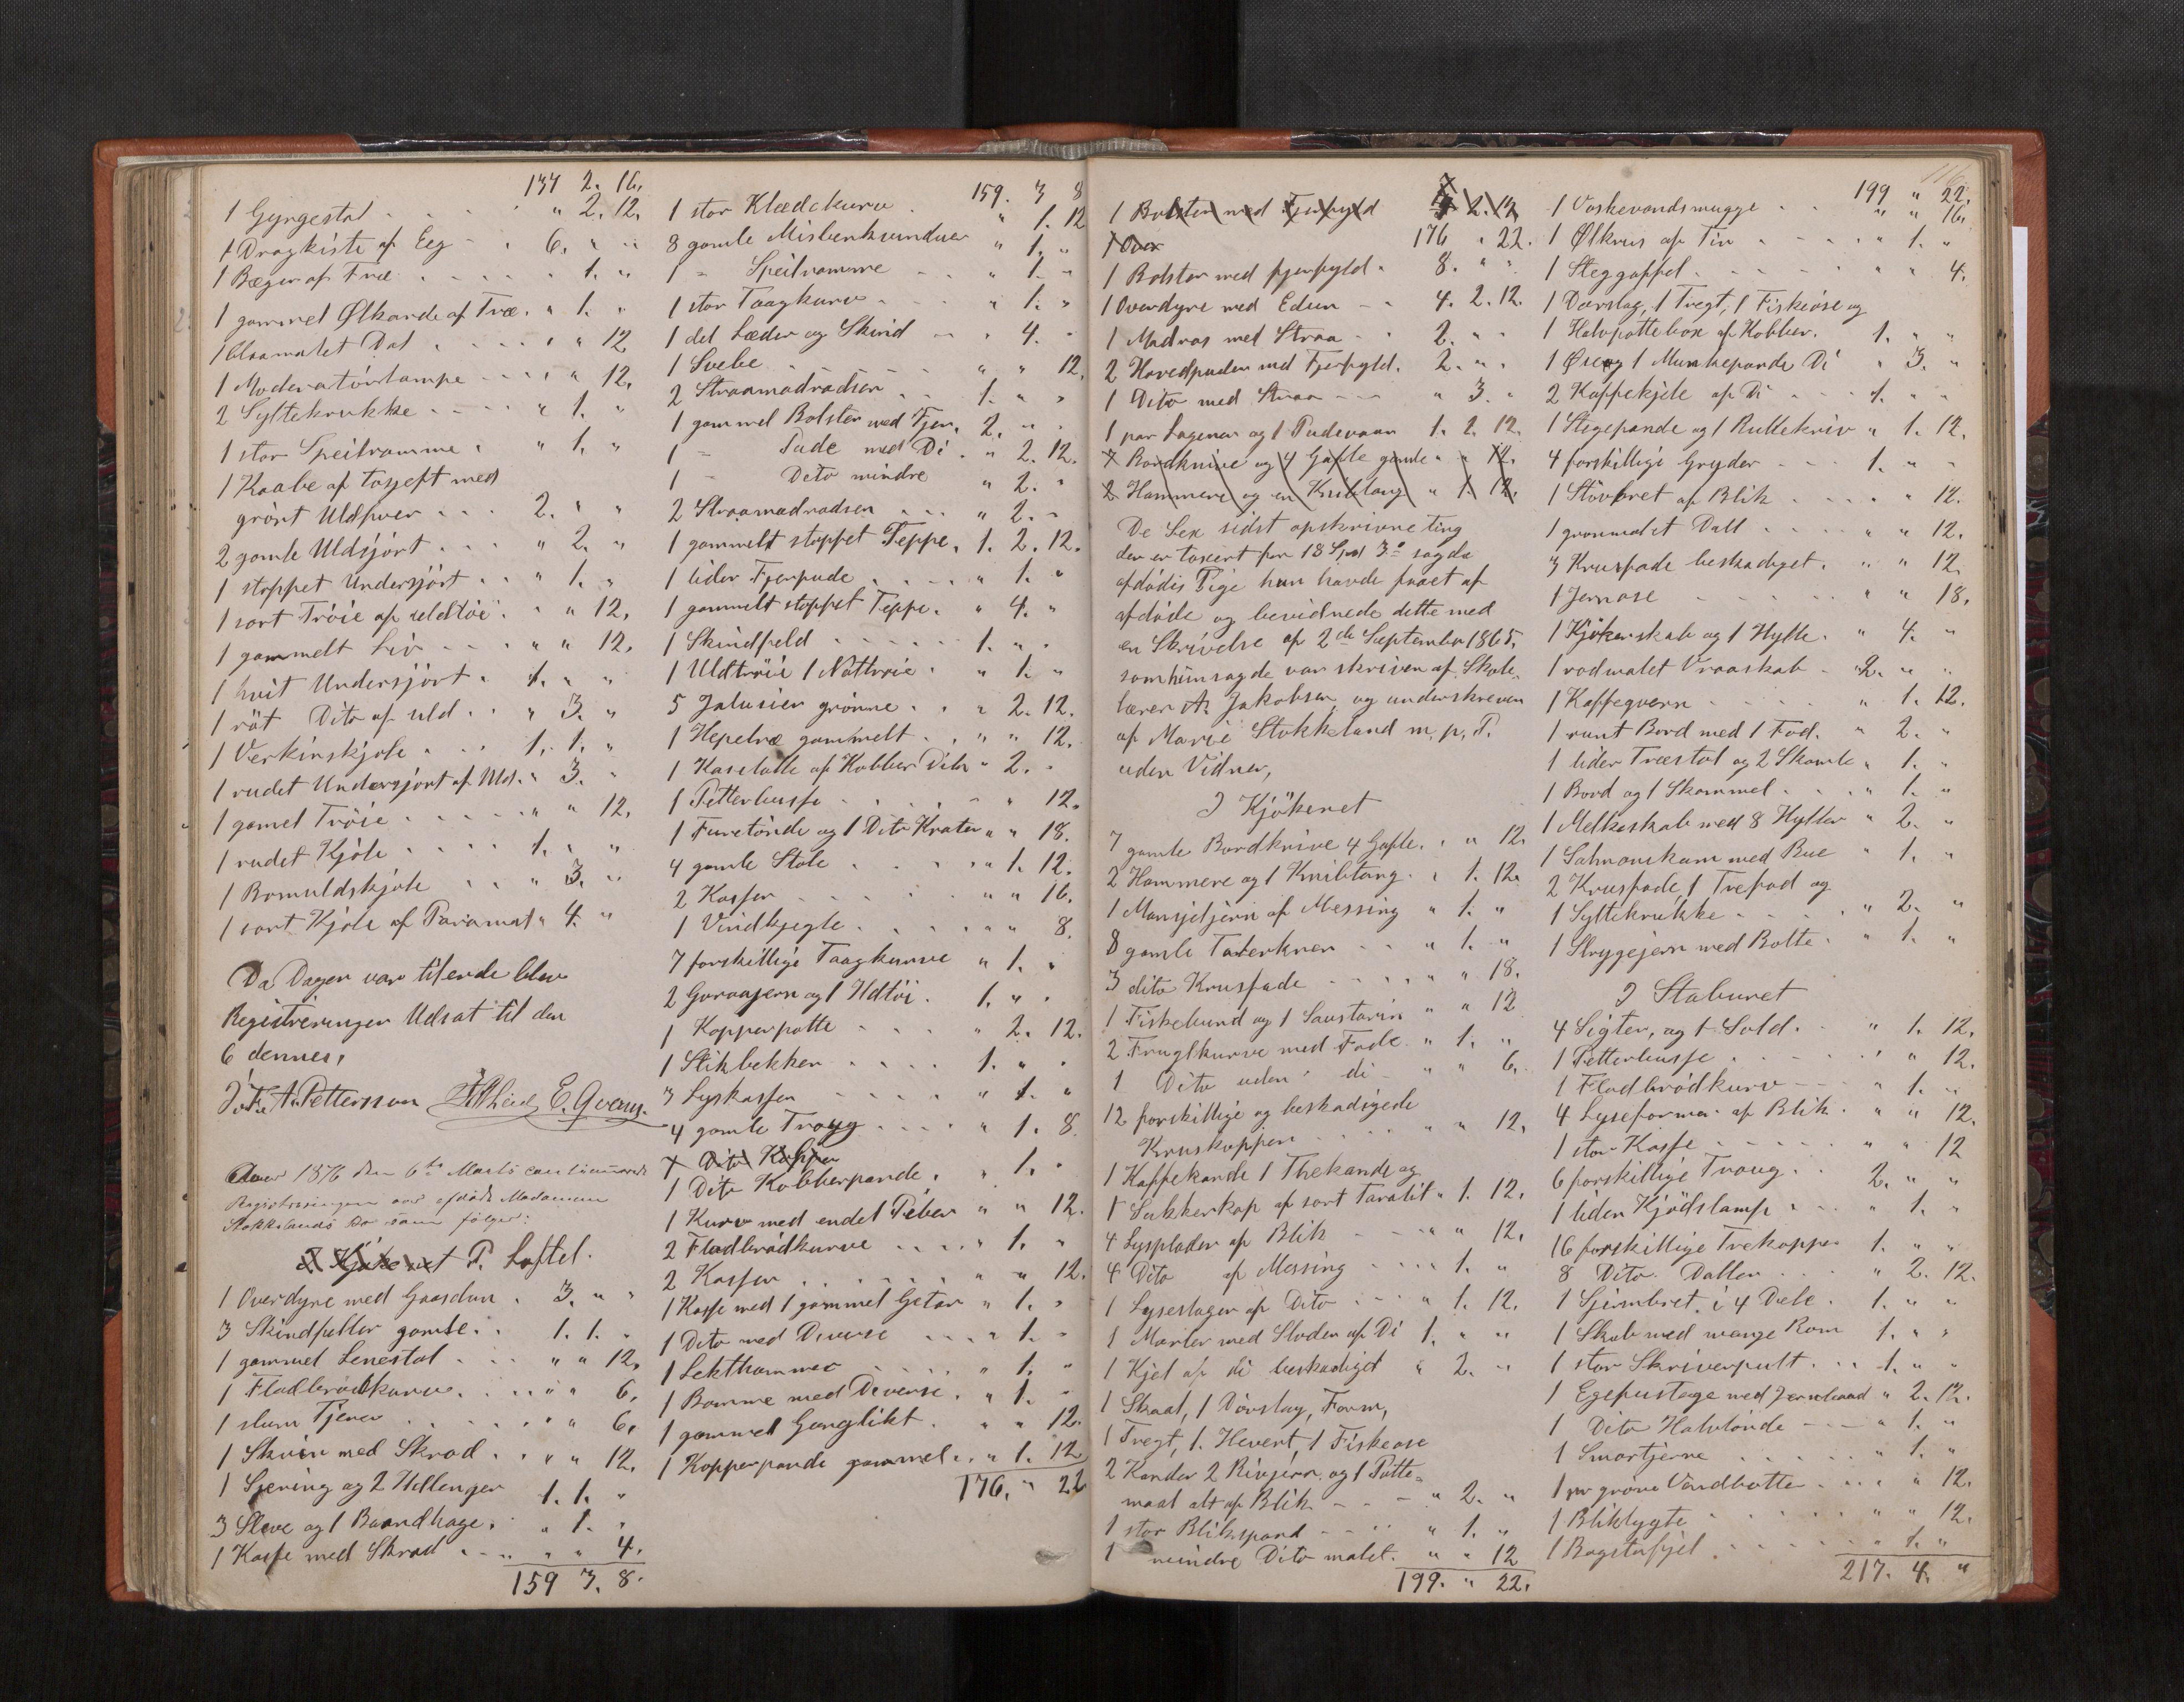 137 2. 16.
1 Gyngestol . . . . " 2. 12.
1 Dragkiste af Eeg - . 6. " "
1 Bæger af Træ . . . . " 1. "
1 gammel Ølkande af Træ. " 1. "
1 blaamalet Dal . . . . " " 12
1 Moderatörlampe . . . " " 12.
2 Syltekrukke . . . . " 1. "
1 stor Speilramme . " 1. "
1 Kaabe af med
grönt Uldfoer . . . 2. " "
2 gamle Uldsjört . . . " 2. "
1 stoppet Undersjört . . " 1. "
1 sort Tröie af uldtöi . . " " 12.
1 gammelt Liv . . . " " 12.
1 hvit Undersjört . 1. " "
1 röt Dito af uld . . " 3. "
1 Verkinskjole . . . 1. 1. "
1 rudet Undersjört af Uld. " 3. "
1 gamel Tröie . . . . " " 12.
1 rudet Kjole . . . . 1. " "
1 Bomuldskjole . . . " 3. "
1 sort Kjole af Paramat " 4. "
Da Dagen var tilende blev
Registreringen Udsat til den
6 dennes,
J. Fr. A. Pettersson E. Qveny.
Aar 1876 den 6te Marts continuerede
Registreringen over afdöde Madamme
Stokkelands Bo som fölger:
I Kjökenet P. Loftet.
1 Overdyne med Gaasdun . 3. " "
3 Skindfeller gamle . . 1. 1. "
1 gammel Lenestol . . . " " 12.
1 Fladbrödkurv . . . . " " 6.
1 slum Tjener . . . . . " " 6.
1 Skrin med Skrod . . " " 12.
1 Sjæring og 2 Hellenger 1. 1. "
3 Sleve og 1 Baandhage . " 1. "
1 Kasse med Skrod . . . " " 4.
159 3. 8.
159. 3 8
1 stor Klædekurv . " 1. 12
8 gamle Misbenkvinduer " 1. "
1 - Speilramme . . " 1. "
1 stor Taagkurv . . . " 1. "
1 del Læder og Skind . . " 4. "
1 Svebe . . . . . " " 12.
2 Straamadradser . . 1. " "
1 gammel Bolster med Fjer. 2. " "
1 - Pude med Di . " 2. 12.
1 - Dito mindre " 2. "
2 Straamadradser . . . " 2. "
1 gammelt stoppet Teppe. 1. 2. 12.
1 liden Fjerpude . . . . " 1. "
1 gammelt stoppet Teppe. " 4. "
1 Skindfeld . . . . . 1. " "
1 Uldtröie 1 Nattröie . " 1. "
5 Jalusier grönne . . " 2. 12.
1 Hepelræ gammelt . . " " 12.
1 af Kobber Dito " 2. "
1 Petterbusse . . . . . " " 12.
1 Furetönde og 1 Dito Krater " " 18.
4 gamle Stole . . . . " 1. 12.
2 Kasser . . . . . " " 16.
1 Vindkjegle . . . . " " 8.
7 forskillige Taagkurve " 1. "
2 Goraajern og 1 Ildtöi . 1. " "
1 Kopperpotte . . . " 2. 12.
1 Stikbekken . . . . 1. " "
3 Lyskasser . . . . " 1. "
4 gamle Traug . . . . " 1. 8
7 Dito Kopper
1 Dito Kobberpande . . " 1. "
1 Kurv med endel Peber " " 12.
2 Fladbrödkurve . . . . " 1. "
2 Kasser . . . . . " " 12.
1 Kasse med 1 gammel Getar " 1. "
1 Dito med Diverse . . . " 1. "
1 Lekthammer . . . . " 1. "
1 Bomme med Diverse . " 1. "
1 gammel Ganglikt . " " 12.
1 Kopperpande gammel . . " 1. 12
176. " 22
1 Bolster med Fjerfyld 7 2. 12
1 Over 176 " 22.
1 Bolster med fjerfyld . 8. " "
1 Overdyne med Edun . . 4. 2. 12.
1 Madras med Straa . . 2. " "
2 Hovedpuder med Fjerfyld. 2. " "
1 Dito med Straa - - - " 3. "
1 par Lagener og 1 Pudevaar 1. 2. 12.
7 Bordknive og 4 Gafle gamle " " 12.
2 Hammere og en Knibtang " 1. 12.
De Sex sidst opskrivne ting
der er taxert for 18 Spd 3 sagde
afdödis Pige hun havde faaet af
afdöde og bevidnede dette med
en Skrivelse af 2de September 1865.
som hun sagde var skriven af Skole-
lærer A. Jakobsen, og underskreven
af Marie Stokkeland m. p. P.
uden Vidner,
I Kjökenet
7 gamle Bordknive 4 Gafle. . " 12.
2 Hammere og 1 Knibtang . " 1. 12.
1 Mansjetjern af Messing " 1. "
8 gamle Talerkner . . " 1. "
3 dito Krusfade . . . . " " 18.
1 Fiskebund og 1 Saustarin " " 12
2 Frugtkurve med Fade . " 1. "
1 Dito uden di - " " 6.
12 forskillige og beskadigede
Kruskopper . . . . " " 12.
1 Kaffekande 1 Thekande og
1 Sukkerkop af sort Taralit " 1. 12.
4 Lysplader af Blik . . " " 12.
4 Dito af Messing . . . " 1. "
1 Lysestager af Dito . . . " 1. 12.
1 Morter med Stoder af Di 1. " "
1 Kjel af di beskadiget " 2. "
1 Skaal, 1 Dörslag, Form,
1 Tregt, 1. Hevert, 1 Fiskeose
2 Kander 2 Rivjern. og 1 Potte-
maal alt af Blik - - - " 2. "
1 stor Blikspand - - . . " 1. "
1 mindre Dito malet. " " 12
199. " 22.
116
199 " 22.
1 Vaskevandsmugge . . " " 16.
1 Ølkrus af Tin . . . . " 1. "
1 Steggaffel . . . . . " " 4.
1 Dörslag, 1 Tregt, 1 Fiskeöse og
1 Halvpottebox af Kobber. 1. " "
1 Öse og 1 Munkepande Di " 3. "
2 Kaffekjele af Di . . . 1. " "
1 Stegepande og 1 Rullekniv " 1. 12.
4 forskillige Gryder . . . 1. " "
1 Stövbret af Blik . . . . " 12.
1 gronmalet Dall . . . . " " 12.
3 Krusfade beskadiget . " " 12
1 Jernose . . . . " " 18.
1 Kjökenskab og 1 Hylle . " 4. "
1 rodmalet Vraaskab . 2. " "
1 Kaffeqvern . . . . . " 1. 12.
1 runt Bord med 1 Fod. " 2. "
1 liden Træstol og 2 Skamle " 1. "
1 Bord og 1 Skammel . . . " 1. "
1 Melkeskab med 8 Hyller " 2. "
1 Salmonskum med Bue " 1. "
2 Krusfade, 1 Trefad og
1 Syltekrukke . . . . " 2. "
1 Strygejern med Bolte . " 1. "
I Staburet
4 Sigter, og 1 Sold . . " 1. 12.
1 Petterbusse . . . . . " " 12.
1 Fladbrödkurv - - - " 1. "
4 Lyseformer af Blik . " " 12.
1 stor Kasse . . . . . " " 12
6 forskillige Traug . . 2. " "
1 liden Kjödstamp . . . " 1. "
16 forskillige Trekopper 1. " "
8 Dito. Daller . . . " 2. 12.
1 Sjirmbret. i 4 Dele . 1. " "
1 Skab med mange Rom 1. " "
1 stor Skriverpult . . . 1. " "
1 Egepustage med Jernbaand " 2. 12.
1 Dito Halvtönde - - - " 1. "
1 Smörtjerne . . . . . " 1. "
1 pr gröne Vandbotte . . . " " 12.
1 Bliklygte . . . . . " " 12.
1 Bagstefjel . . . . . " 1. "
217. 4. "